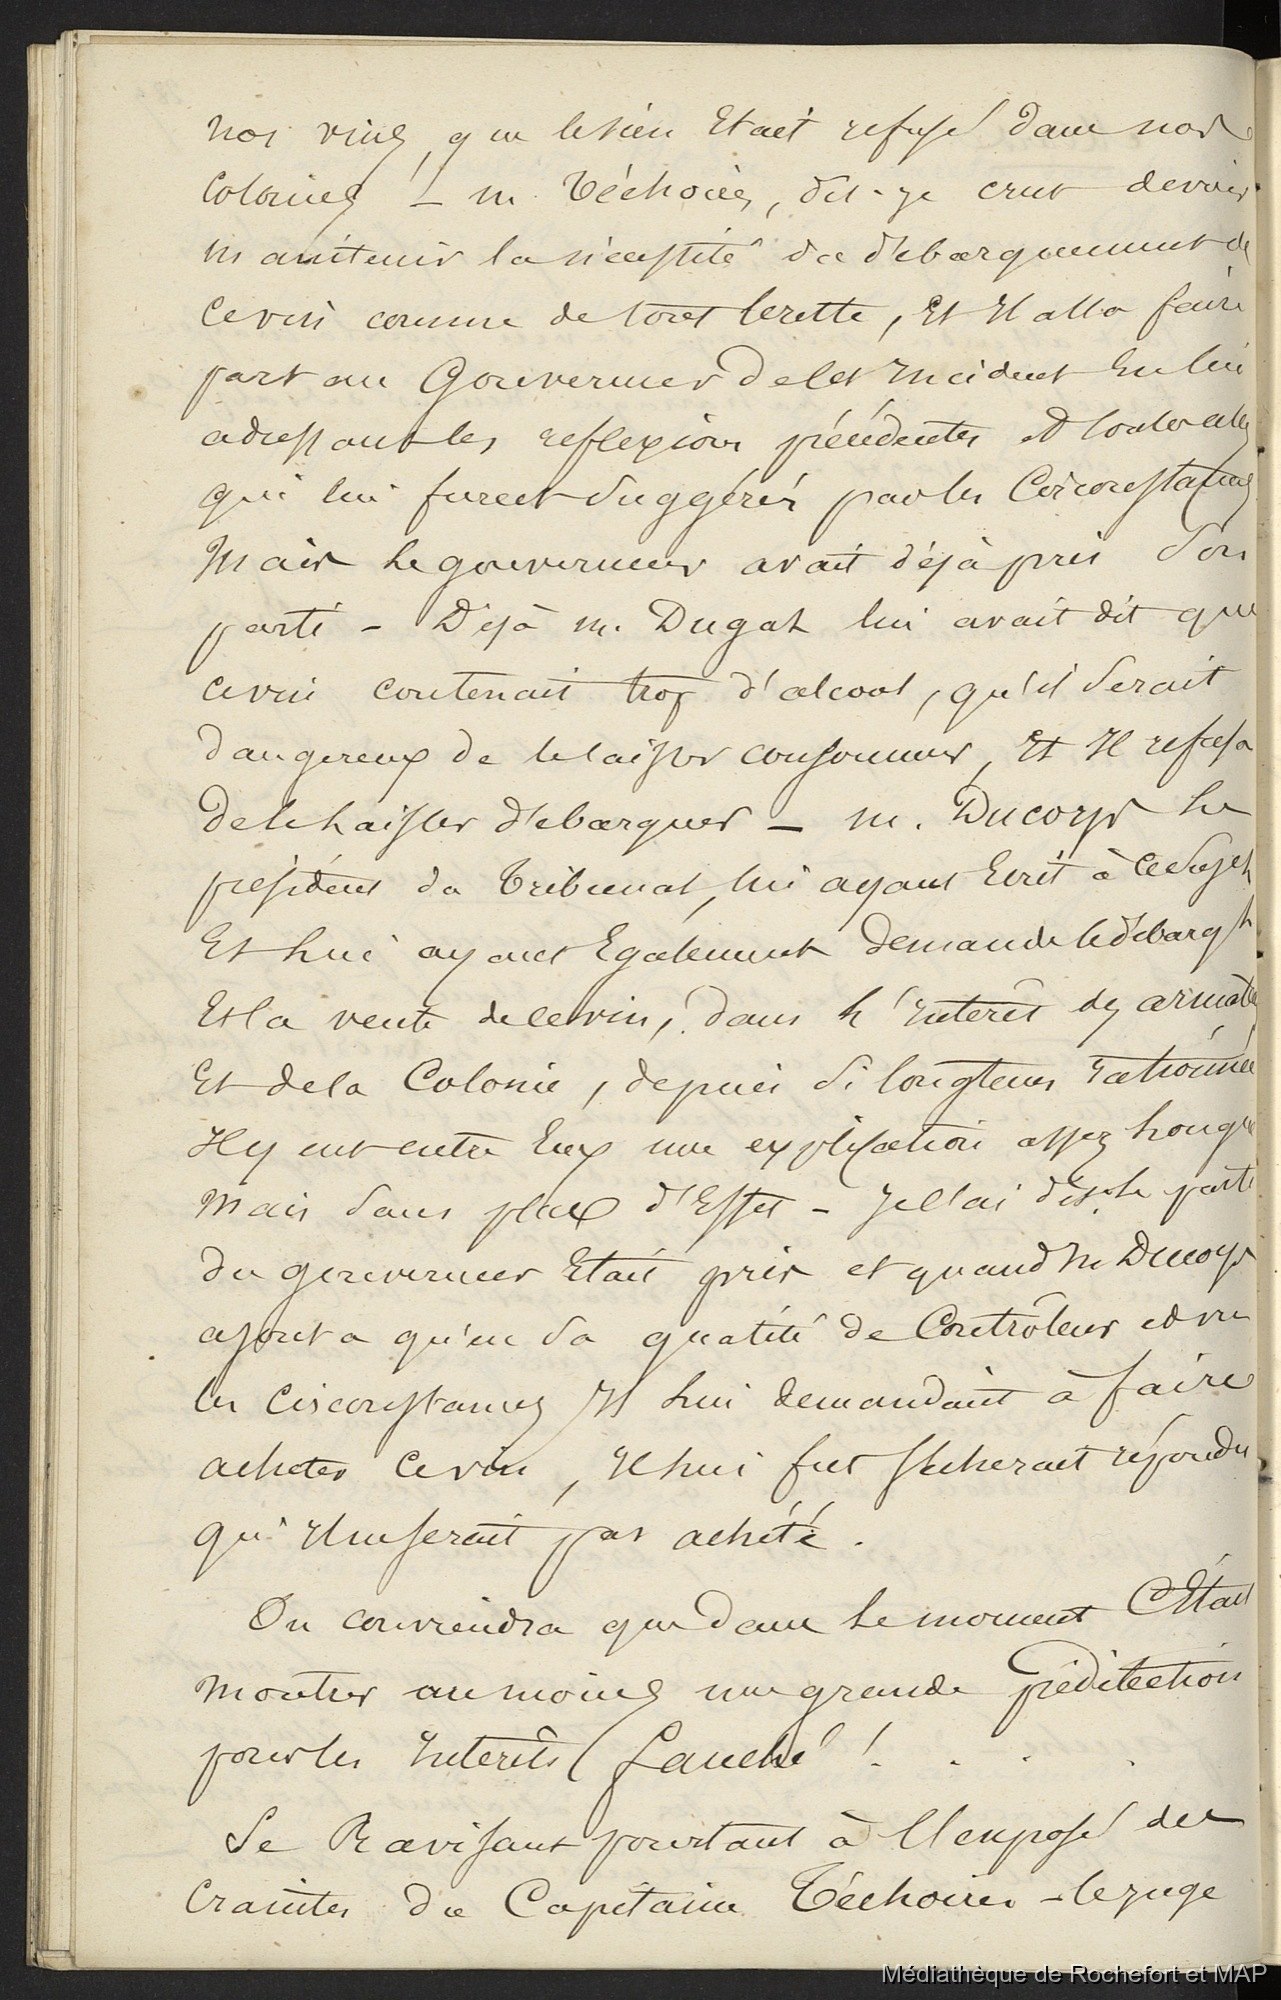 nos vins, que le sien Etait refusé dans nos
Colonies – M. Téchoires, dis-je crut devoir
maintenir la nécessité du débarquement de
ce vin comme de toute cette, Et Il alla faire
part au Gouverneur de cet Incident En lui
adressant les reflexions précédentes et toutes celles
qui lui furent suggérés par les Circonstances
Mais le gouverneur avait déjà pris son
parti – Déjà M. Dugat lui avait dit que
ce vin contenait trop d'alcool, qu'il serait
dangereux de le laisser consommer, Et Il refusa
de le laisser débarquer – M. Ducorps le
président du Tribunal, lui ayant Ecrit à ce sujet
Et lui ayant Egalement demandé le débarqt
Et la vente de ce vin, dans l'Intérêt des armateurs
Et de la Colonie, depuis si longtems rationnée
Il y eut entre Eux une explication assez longue
Mais sans plus d'Effet – Je l'ai dit, le parti
du gouverneur Etait pris et quand M Ducorps
ajouta qu'en sa qualité de Contrôleur et vu
les circonstances Il lui demandait à faire
acheter ce vin, Il lui fut sèchement répondu
qu'Il ne serait pas achété.
On conviendra que dans le moment C'Etait
montrer au moins une grande prédilection
pour les Intérêts Lauché ! . . .
Se Ravisant pourtant à l'exposé des
craintes du Capitaine Téchoires – le juge
Médiathèque de Rochefort et MAP